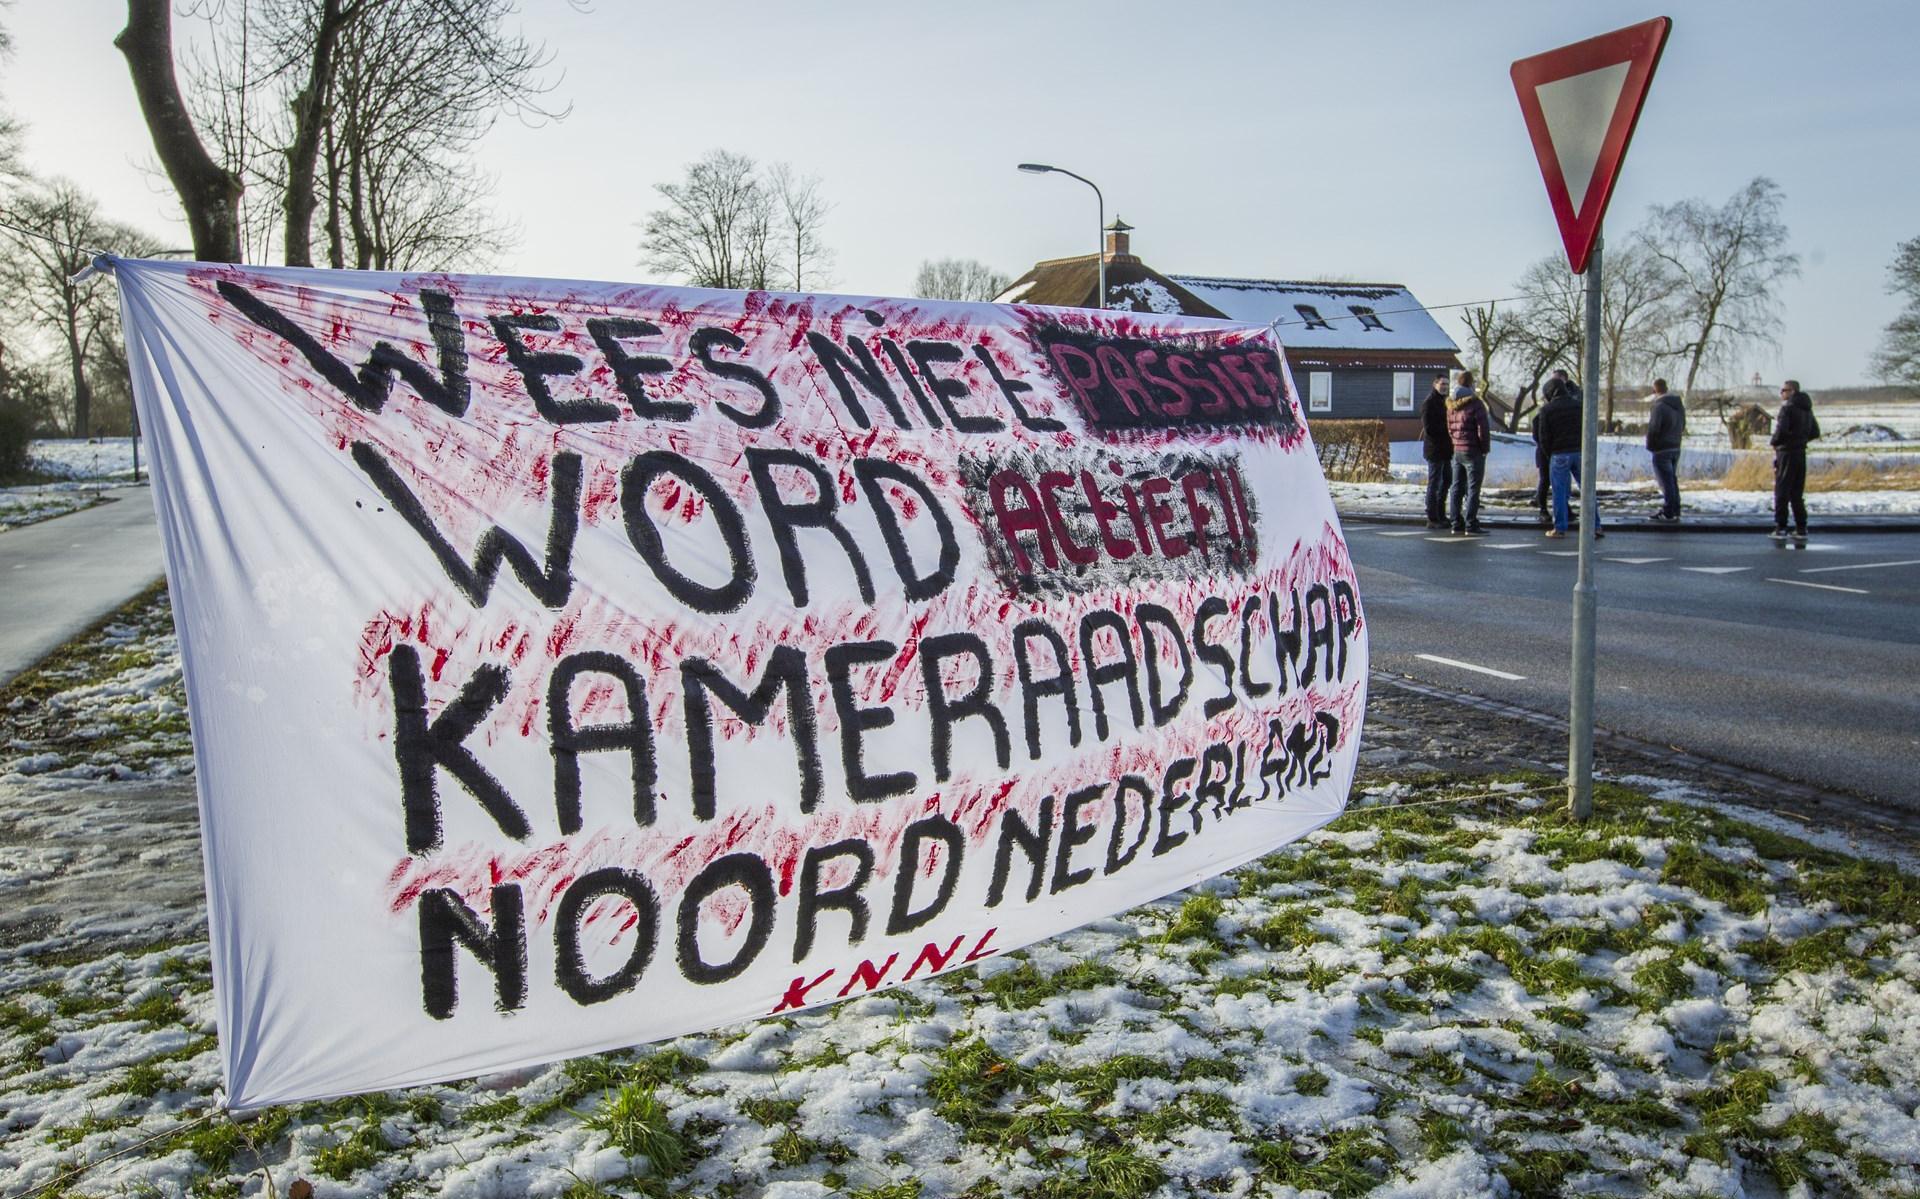 WEES NIET PASSIEF
WORD ACtiEF!!
KAMERAADSCHAP
NOORD NEDERLAND
K.N.N.L